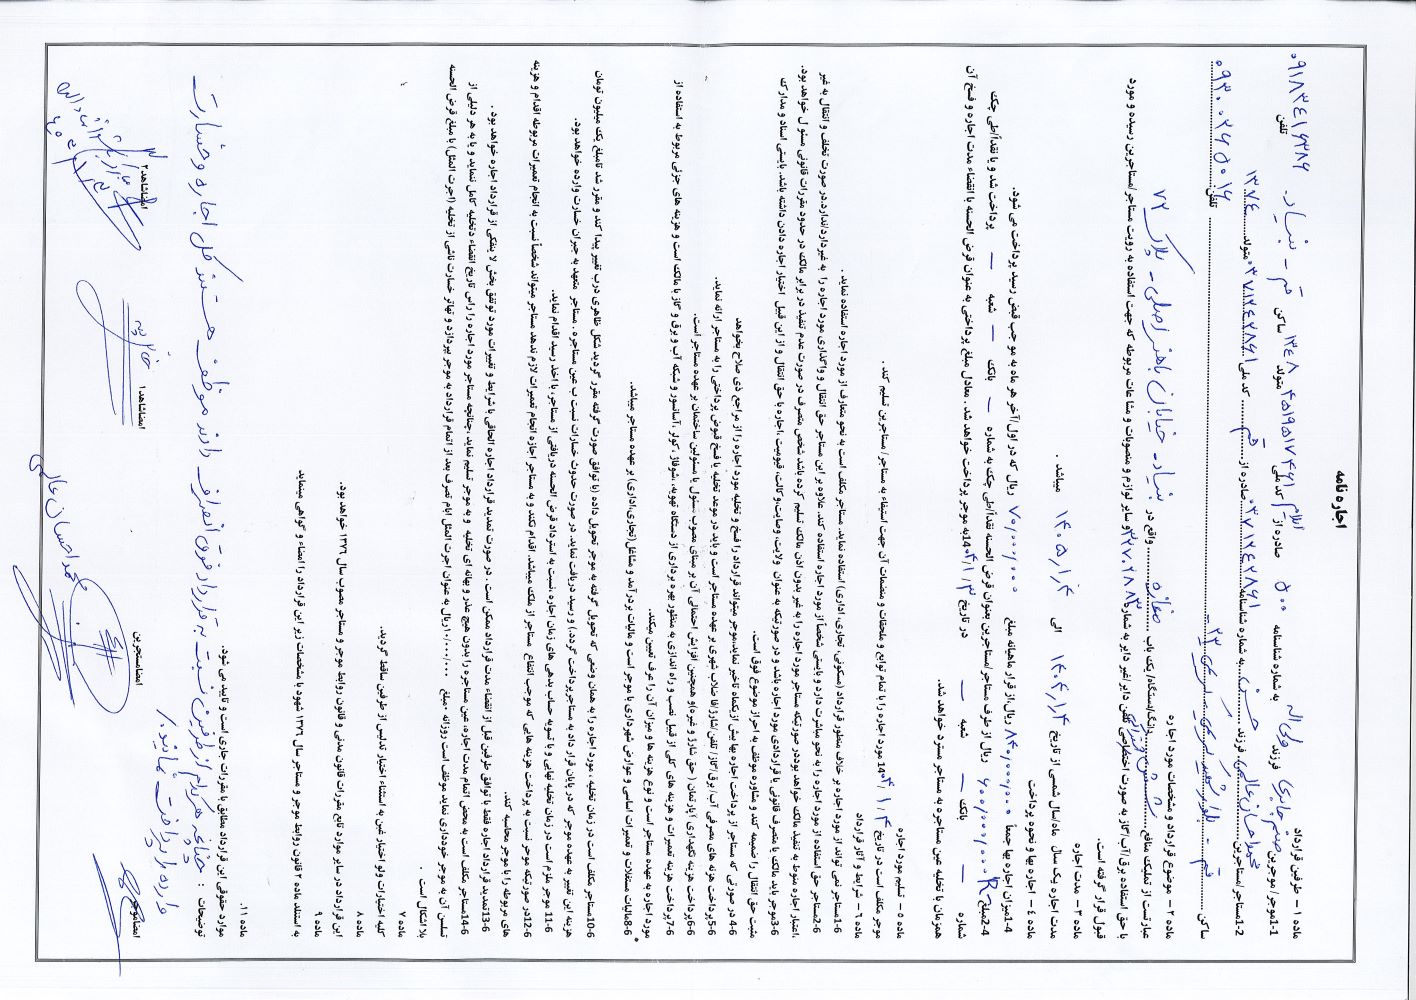 اجاره نامه
ماده ۱ – طرفین قرارداد
1-1موجر/ موجرین صنم جابری فرزند ولی اله به شماره شناسنامه ۵۰۰ صادره از ایلام کد ملی ۴۵۱۹۵۱۷۴۶۱ متولد ۱۳۴۸ ساکن قم - بنیاد. تلفن ۰۹۱۸۳۴۱۶۳۸۶
1-2مستاجر/مستاجرین محمد احسان عالمی فرزند حسن به شماره شناسنامه ۰۳۷۱۲۴۲۸۶۱ صادره از قم کد ملی ۰۳۷۱۲۴۲۸۶۱ متولد ۱۳۷۴
ساکن قم - بلوار شهید کریمی - کریمی ۲۳ - تلفن: ۰۹۳۰۰۲۶۵۰۱۶
ماده ۲ – موضوع قرارداد و مشخصات مورد اجاره
عبارتست از تملیک منافع شش دانگ/دستگاه/ یک باب مغازه واقع در بنیاد - خیابان باهنر اصلی - پلاک ۷۲
با حق استفاده برق/آب/گاز به صورت اختصاصی اشتراکی تلفن دایر/غیر دایر به شماره ۳۲۷۰۲۸۸۳ و سایر لوازم و منصوبات و مشاعات مربوطه که جهت استفاده به رویت مستاجر/مستاجرین رسیده و مورد
قبول قرار گرفته است.
ماده ۳ – مدت اجاره
مدت اجاره یک سال ماه/سال شمسی از تاریخ ۱۴۰۴/۱/۴ الی ۱۴۰۵/۱/۴ میباشد .
ماده ٤ – اجاره بها و نحوه پرداخت
1-4میزان اجاره بها جمعاً ۸۴۰/۰۰۰/۰۰۰ ریال،از قرار ماهیانه مبلغ ۷۰/۰۰۰/۰۰۰ ریال که در اول/آخر هر ماه به مو جب قبض رسید پرداخت می شود.
2-4مبلغ ۶۰۰/۰۰۰/۰۰۰R ریال از طرف مستاجر/مستاجرین بعنوان قرض الحسنه نقداً/طی چک به شماره – بانک – شعبه – پرداخت شد و یا نقداً/طی چک
شماره – بانک – شعبه – در تاریخ ۱۴۰۴/۱/۳ به موجر پرداخت خواهد شد . معادل مبلغ پرداختی به عنوان قرض الحسنه با انقضاء مدت اجاره و فسخ آن
همزمان با تخلیه عین مستاجره به مستاجر مسترد خواهد شد.
ماده ٥ – تسلیم مورد اجاره
موجر مکلف است در تاریخ ۱۴۰۴/۱/۴ مورد اجاره را با تمام توابع و ملحقات و منضمات آن جهت استیفاء به مستاجر/ مستاجرین تسلیم کند .
ماده ٦ – شرایط و آثار قرارداد
1-6مستاجر نمی تواند از مورد اجاره بر خلاف منظور قرارداد (مسکونی، تجاری، اداری) استفاده نماید. مستاجر مکلف است به نحو متعارف از مورد اجاره استفاده نماید .
2-6مستاجر حق استفاده از مورد اجاره را به نحو مباشرت دارد و بایستی شخصاً از مورد اجاره استفاده کند. علاوه بر این مستاجر حق انتقال و واگذاری مورد اجاره را به غیردارد/ندارد.در صورت تخلف و انتقال به غیر
،اعتبار اجاره منوط به تنفیذ مالک خواهد بوددر صورتیکه مستاجر مورد اجاره را به غیر بدون اذن مالک تسلیم کرده باشد شخص متصرف در صورت عدم تنفیذ در برابر مالک در حدود مقررات قانونی مسئول خواهد بود.
3-6موجر باید مالک یا متصرف قانونی یا قراردادی مورد اجاره باشد و در صورتیکه به عنوان ولایت، وصایت،وکالت، قیومیت ،اجاره با حق انتقال و از این قبیل اختیار اجاره دادن داشته باشد. بایستی اسناد و مدارک
مثبت حق انتقال را ضمیمه کند و مشاوره موظف به احراز موضوع فوق است.
4-6 در صورتی که مستاجر از پرداخت اجاره بها بیش ازیکماه تاخیر نماید،موجر میتواند قرارداد را فسخ و تخلیه مورد اجاره را از مراجع ذی صلاح بخواهد
5-6پرداخت هزنه های مصرفی آب/ برق/گاز/ تلفن/شارژ/فا ضلاب شهری بر عهده مستاجر است و باید در موعد تخلیه یا فسخ قبوض پرداختی را به مستاجر ارائه نماید.
6-6پرداخت هزینه نگهداری آپارتمان ( حق شارژ و غیره)و همچنین افزایش احتمالی آن بر مبنای مصوب مسئول یا مسئولین ساختمان بر عهده مستاجر است.
7-6پرداخت هزینه تعمیرات و هزینه های کلی از قبیل نصب و راه اندازی به منظور بهره برداری از دستگاه تهویه، شوفاژ ،کولر ،آسانسور و شبکه آب و برق و گاز با مالک است و هزینه های جزئی مربوط به استفاده از
مورد اجاره به عهده مستاجر است و نوع هزینه ها و میزان آن را عرف تعیین میکند.
8-6مالیات مستغلات و تعمیرات اساسی و عوارض شهرداری با موجر است و مالیات بردرآمد و مشاغل(تجاری،اداری) بر عهده مستاجر میباشد.
10-6مستاجر مکلف است در زمان تخلیه ، مورد اجاره را به همان وضعی که تحویل گرفته به موجر تحویل داده (با توافق صورت گرفته مقرر گردید شکل ظاهری درب تغییر پیدا کند و مقرر شد تامبلغ یک میلیون تومان
هزینه این تغییر به عهده موجر که در پایان قرار داد به مستاجرپرداخت گردد.) و رسید دریافت نماید. در صورت حدوث خسارات نسبت ب عین مستاجره . مستاجر متعهد به جبران خسارت وارده خواهد بود.
11-6 موجر ملزم است در زمان تخلیه نهایی و با تسویه حساب بدهی های زمان اجاره ،نسبت به استرداد قرض الحسنه دریافتی از مستاجر، با اخذ رسید اقدام نماید.
12-6در صورتیکه موجر نسبت به پرداخت هزینه هایی که موجب انتفاع مستاجر از ملک میباشد. اقدام نکند و به مستاجر اجازه انجام تعمیرات لازم ندهد مستاجر میتواند شخصاً نسبت به انجام تعمیرات مربوطه اقدام و هزینه
های مربوطه را با موجر محاسبه کند.
13-6تمدید قرارداد اجاره فقط با توافق طرفین قبل از انقضاء مدت قرارداد ممکن است . در صورت تمدید قرارداد اجاره الحاقی با شرایط و تغییرات مورد توتفق بخش لا ینفکی از قرارداد اجاره خواهد بود .
14-6مستاجر مکلف است به محض اتمام مدت اجاره، عین مستاجره را بدون هیچ عذر و بهانه ای تخلیه و به موجر تسلیم نماید ،چنانچه مستاجر مورد اجاره را راس تاریخ انقضاء دتخلیه کامل ننماید و یا به هر دلیلی از
تسلسن آن به موجر خودداری نماید موظف است روزانه ۰مبلغ ۱۰/۰۰۰/۰۰۰ریال به عنوان اجرت المثل ابام تصرف بعد از اتمام قرارداد به موجر بپردازد و تهاتر خسارت ناشی از تخلیه (اجرت المثل) با مبلغ قرض الحسنه
بلا اشکال است .
ماده ۷
کلیه اختیارات ولو اختیار غبن به استثناء اختیار تدلیس از طرفین ساقط گردید.
ماده ۸
این قرارداد در سایر موارد تابع مقررات قانون مدنی و قانون روابط موجر و مستاجر مصوب سال ۱۳۷٦ خواهد بود.
ماده ۹
به استنلد ماده ۲ قانون روابط موجر و مستاجر سال ۱۳۷٦ شهود با مشخصات زیر این قرارداد را امضاء و گواهی مینماید
ماده ۱۱.
موارد حقوقی این قرارداد مطابق با مقررات جاری است و تایید می شود.
توضیحات : چنانچه هرکدام از طرفین نسبت به قرارداد فوق انصراف دادند موظف هستند کل اجاره و خسارت
وارده را پرداخت نمایند./
امضاموجر امضامستجرین امضاشاهد۱ امضاشاهد۲
محمد احسان عالمی